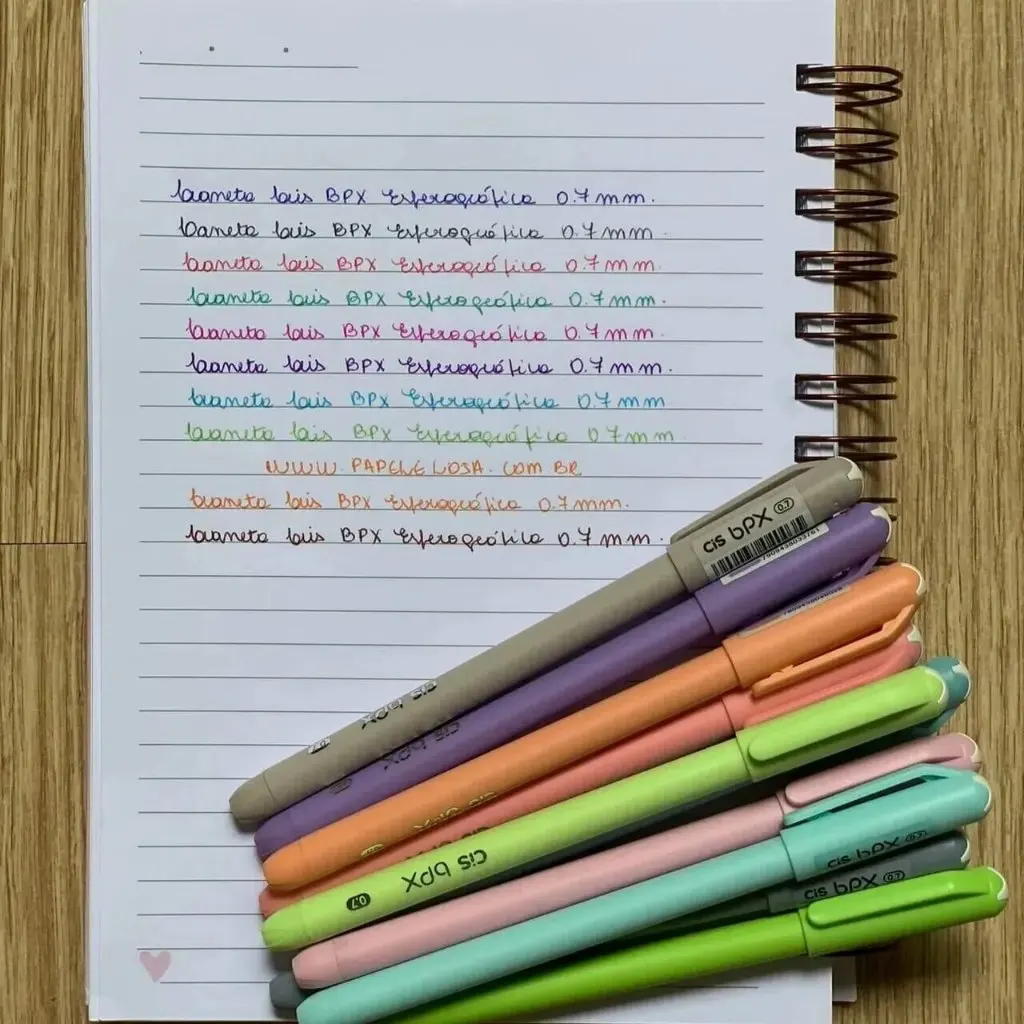 Caneta Cis BPX Esferográfica 0.7mm.
Caneta Cis BPX Esferográfica 0.7mm.
Caneta Cis BPX Esferográfica 0.7mm.
Caneta Cis BPX Esferográfica 0.7mm.
Caneta Cis BPX Esferográfica 0.7mm.
Caneta Cis BPX Esferográfica 0.7mm.
Caneta Cis BPX Esferográfica 0.7mm
Caneta Cis BPX Esferográfica 0.7mm.
WWW.PAPELELOSA.COM BR
Caneta Cis BPX Esferográfica 0.7mm.
Caneta Cis BPX Esferográfica 0.7mm.
cis bpx 0.7
cis bpx 0.7
cis bpx
cis bpx
cis bpx 0.7
cis bpx 0.7
cis bpx 0.7